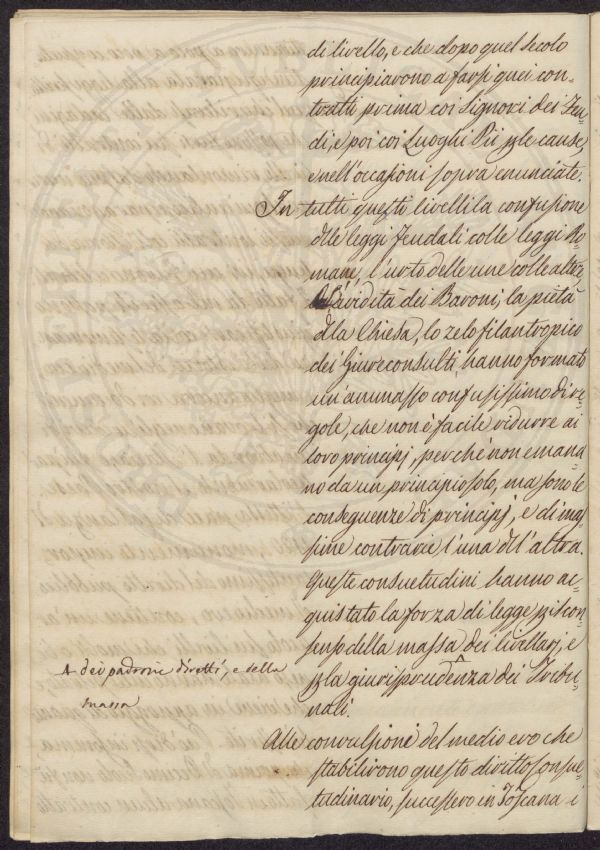 di livello, e che dopo quel secolo
principiarono a farsi quei con-
tratti prima coi Signori dei Feu-
di, e poi coi Luoghi Pii ple cause,
e nell'occasioni sopra enunciate.
In tutti questi livelli la confusione
dlle leggi Feudali colle leggi Ro-
mane, l'urto delle une colle altre,
l'avidità dei Baroni, la pietà
dlla Chiesa, lo zelo filantropico
dei Giureconsulti hanno formato
un'ammasso confusissimo di re-
gole, che non è facile ridurre ai
loro principj, perchè non emana-
no da un principio solo, ma sono le
conseguenze di principj, e di mas-
sime contrarie l'una dll'altra.
Queste consuetudini hanno ac-
quistato la forza di legge pl con-
senso della massa dei livellarj, e
pla giurisprudenza dei Tribu-
nali.
A dei padroni diretti, e della
massa
Alle convulsioni del medio evo che
stabilirono questo diritto consue-
tudinario, successero in Toscana i